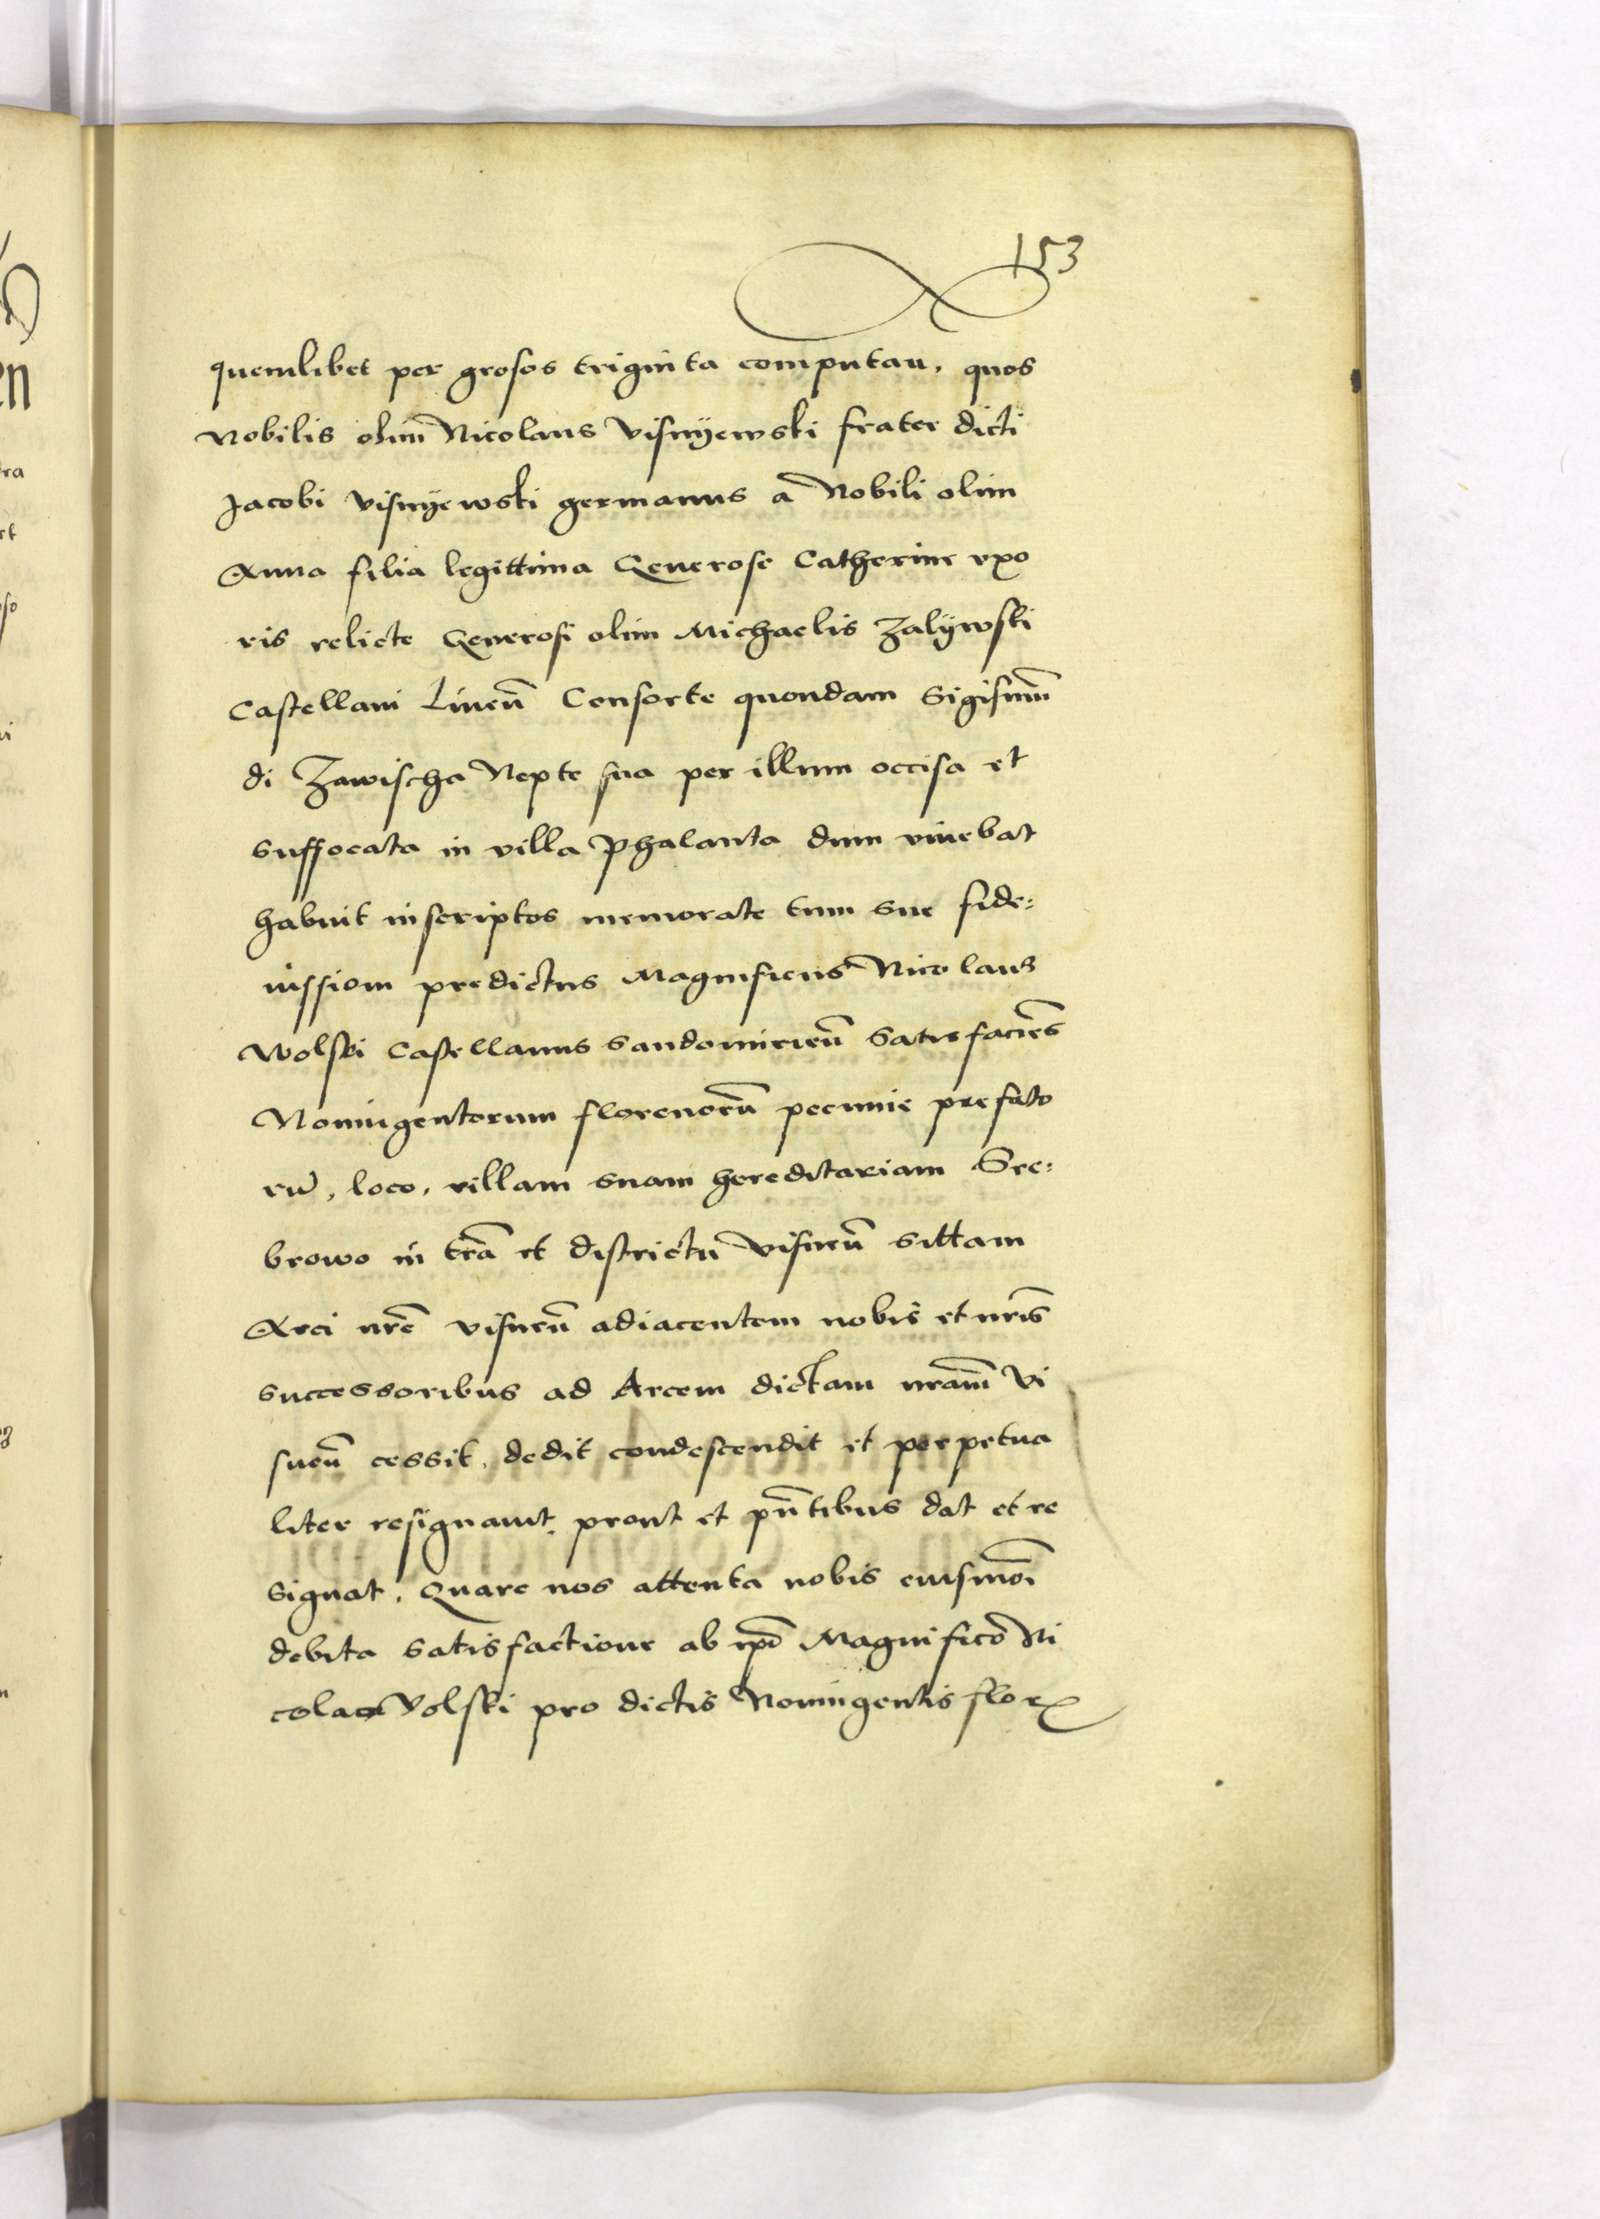 153
quemlibet per grosos triginta computan, quos
Nobilis olim Nicolaus Visnyewski frater dicti
Jacobi Visnyewski germanus a Nobili olim
Anna filia legittima Generose Catherine vxo
ris relicte Generosi olim Michaelis Zalywski
Castellani Linen̄ Consorte quondam Sigismun
di Zawischa Nepte sua per illum occisa et
suffocata in villa Phalanta dum viuebat
habuit inscriptos memorate tum sue fide:
iussiom predictus Magnificus Nicolaus
Wolski Castellanus Sandomirien̄ Satisfaciēs
Noningentorum florenorū pecunie prefato
rū, loco, villam suam hereditariam Sre:
browo in trā et districtu Visnen̄ sittam
Arci nrē Visnen̄ adiacentem nobis et nrīs
successoribus ad Arcem dictam nrām Vi
snen̄ cessit, dedit condescendit et perpetua
liter resignauit, prout et pn̄tibus dat et re
signat, Quare nos attenta nobis eiusmōi
debita satisfactione ab ip̄o Magnifico Ni
colao Volski pro dictis Noningentis flor